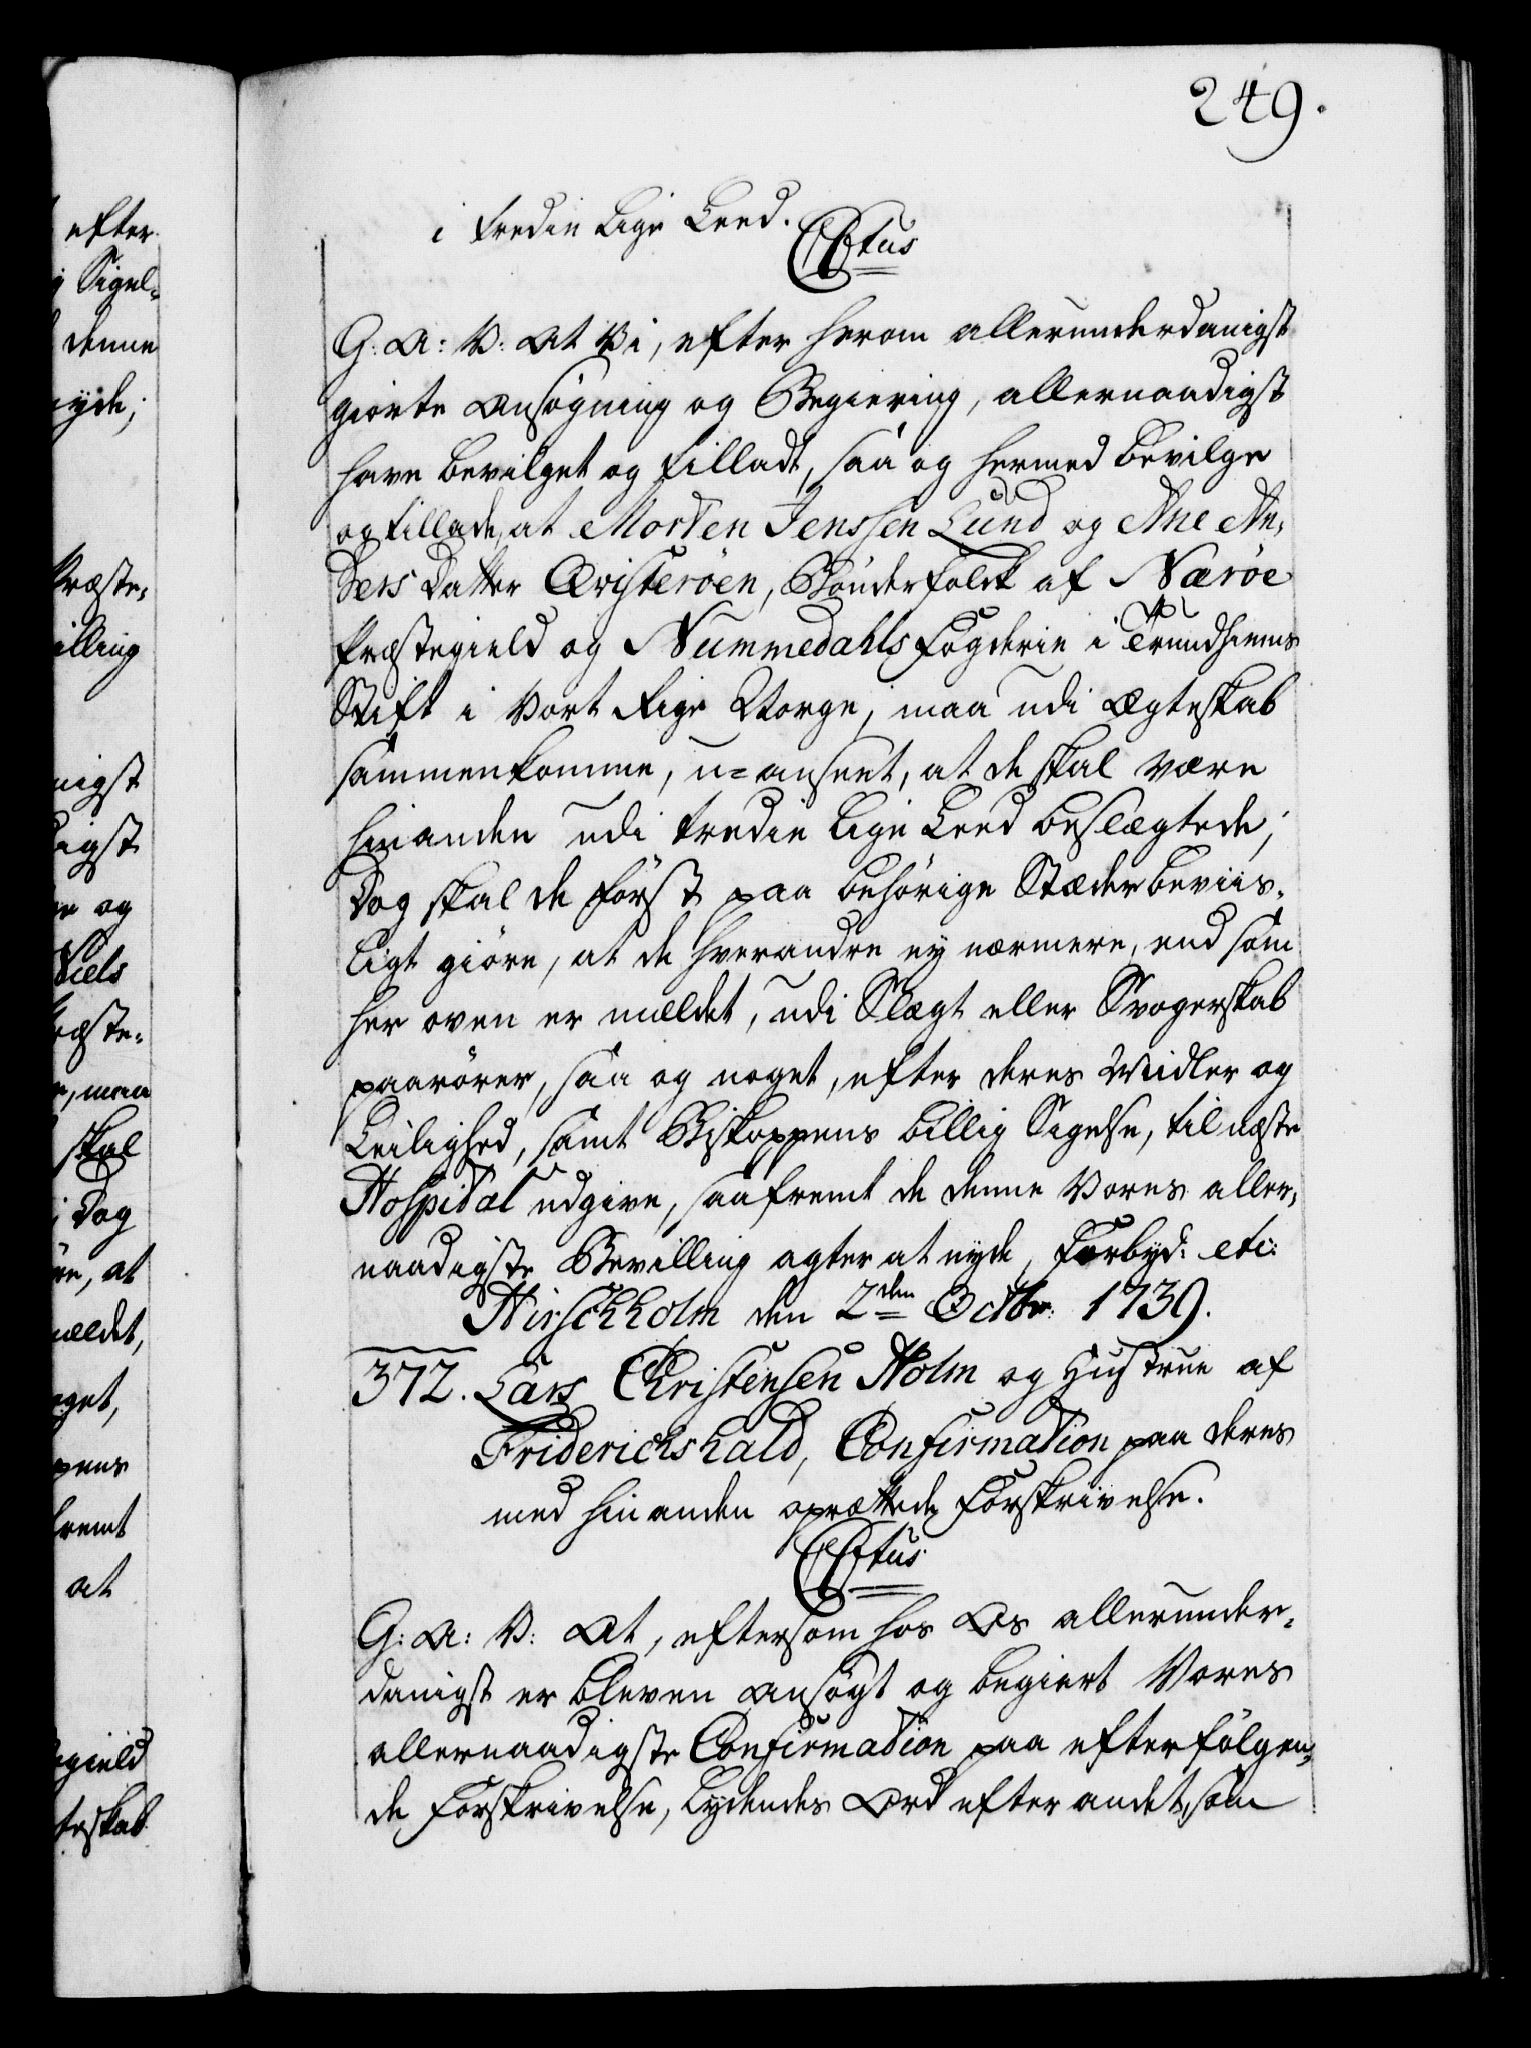 249.
i tredie Lige Leed.
CStus
G: A: V: At Vi, efter herom allerunderdanigst
giorte Ansøgning og Begiering, allernaadigst
have bevilget og tilladt, saa og hermed bevilge
og tillade, at Morten Jenssen Lund og Ane An-
ders Datter Øvisterøen, Bønderfolck af Nærøe
Præstegield og Nummedahls Fogderie i Trundhiems
Stift i Vort Rige Norge, maa udi Ægteskab
sammenkomme, u=anseet, at de skal være
hinanden udi tredie Lige Leed beslægtede;
Dog skal de først paa behörige Stæder beviis-
ligt giöre, at de hverandre ey nærmere, end som
her oven er meldet, udi Slægt eller Svogerskab
paarörer, saa og noget, efter deres Midler og
Leilighed, samt Biskoppens billig Sigelse, til næste
Hospital udgive, saafremt de denne Vores aller-
naadigste Bevilling agter at nyde, Forbyd: etc:
Hirschholm den 2den Octbr: 1739.
372. Lars Christensen Holm og Hustrue af
Friderichshald, Confirmation paa deres
med hinanden oprættede Forskrivelse.
CStus
G: A: V: At, eftersom hos Os allerunder-
danigst er bleven ansögt og begiert Vores
allernaadigste Confirmation paa efterfölgen-
de Forskrivelse, Lydendes Ord efter andet, som
efter
Sigel-
denne
nyde;
Præste-
illing
nigst
digst
og
Niels
ræste-
maa
skal
Dog
at
meldet,
noget,
ppens
fremt
at
egield
teskab